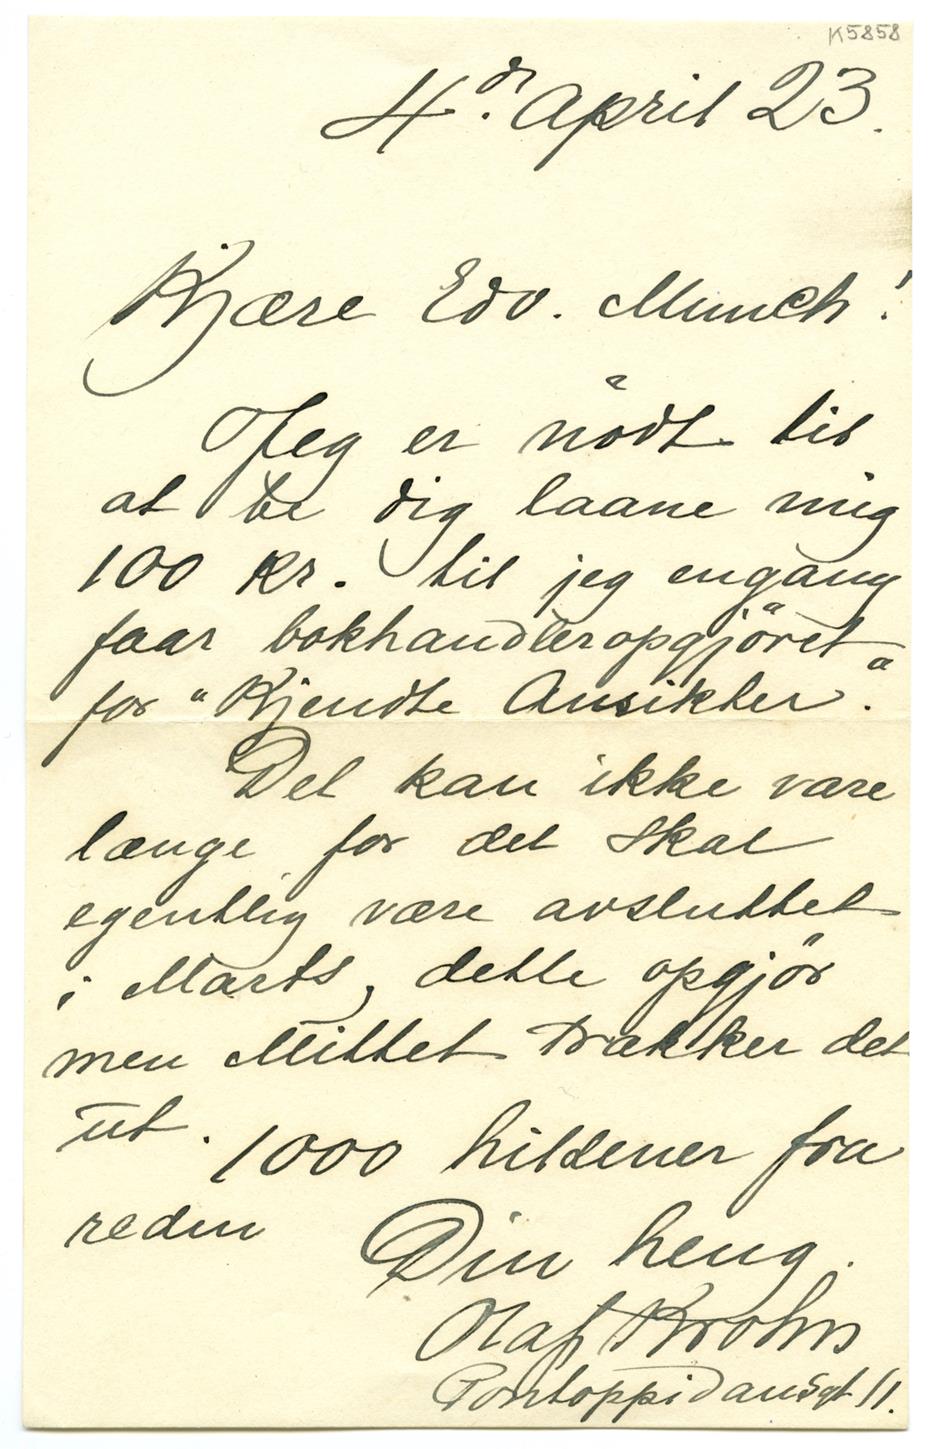 K5858
4de April 23.
Kjære Edv. Munch!
Jeg er nödt til
at be dig laane mig
100 kr. til jeg engang
faar bokhandleropgjöret
for "Kjendte Ansikter".
Det kan ikke vare
længe for det skal
egentlig være avsluttet
i Marts, dette opgjör
men Mittet trækker det
ut.
1000 hilsener fra
reden
Din heng.
Olaf Krohn
Pontoppidansgt 11.